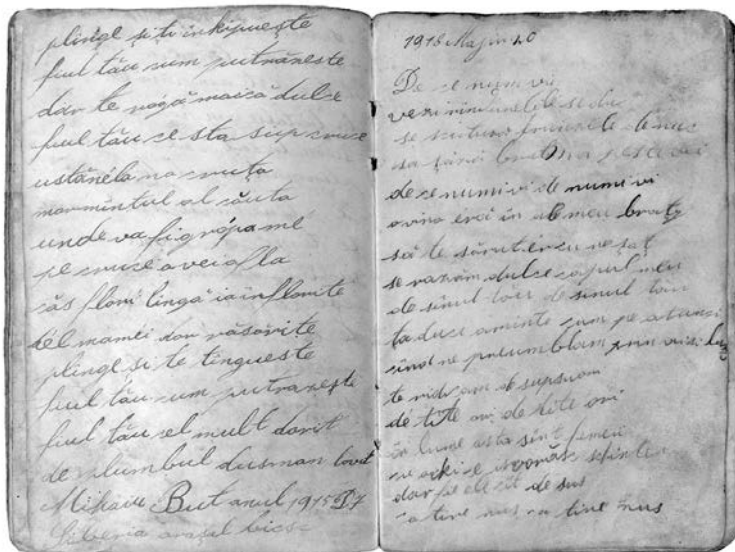 plinge și ti inkipuește
fiul tău cum putrăzește
dar te rógă maică dulce
fiul tău ce sta sup cruce
mormîntul al căuta
unde va fi grópa mé
pe cruce o vei afla
căs flori lîngă ia înflorite
dor răsărite
plinge si te tingueste
fiul tău cum putrazește
fiul tău cel mult dorit
de plumbul dusman lovit
Mihaiu But anul 1915 D 7
Siberia orașul
1916 Majiu 20
De ce nu mi vi
vezi rîndunelele se duc
se scutura frunzele de nuc
de ce nu mi vi de nu mi vi
o vino eroi în al meu bratz
să te sărut cu nesaț
se razăm dulce capul meu
de sînul tău de sînul tău
ta duce aminte cum pe atunci
cînd ne preumblam prin
te ridicam de supsuori
de kîte ori de kîte ori
în lume asta sînt femei
cu oki ce scînte
dar fie cît de sus
ca tine nus ca tine nus